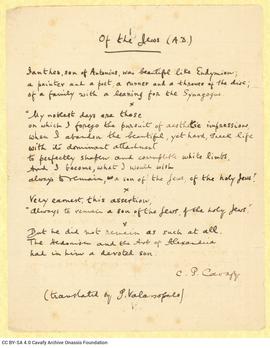 Of the Jews (A.D.)
Ianthes, son of Antonius, was beautiful like Endymion;
a painter and a poet, a runner and a thrower of the disc;
of a family with a leaning for the Synagogue
"My noblest days are those
on which I forego the pursuit of aesthetic impression
when I abandon the beautiful, yet hard, Greek life
with its dominant attachment
to perfectly shapen and corruptible white limbs,
And I become, what I would wish
always to remain, a son of the Jews, of the holy Jews!
Very earnest, this assertion,
"always to remain a son of the Jews, of the holy Jews!"
But he did not remain as such at all.
The Hedonism and the Art of Alexandria
had in him a devoted son
C. P. Cavafy
(translated by P. Valassopoulo)
CC BY-SA 4.0 Cavafy Archive Onassis Foundation